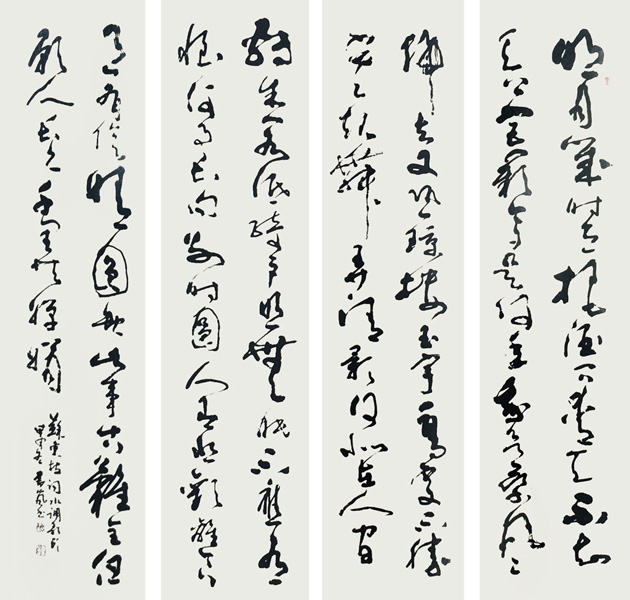 明月幾时有把酒问青天不知
天上宫阙今夕是何年我欲乘风
歸去又恐瓊楼玉宇高處不勝
寒起舞弄清影何似在人间
轉朱阁低绮户照無眠不應有
恨何事长向别时圆人有悲歡離合
月有阴晴圆缺此事古難全但
願人长久千里共嬋娟
蘇東坡词水调歌头